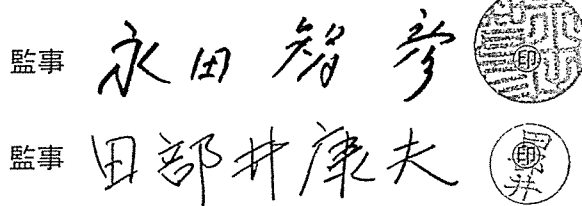 監事 永田智彦 ㊞
監事 田部井康夫 ㊞